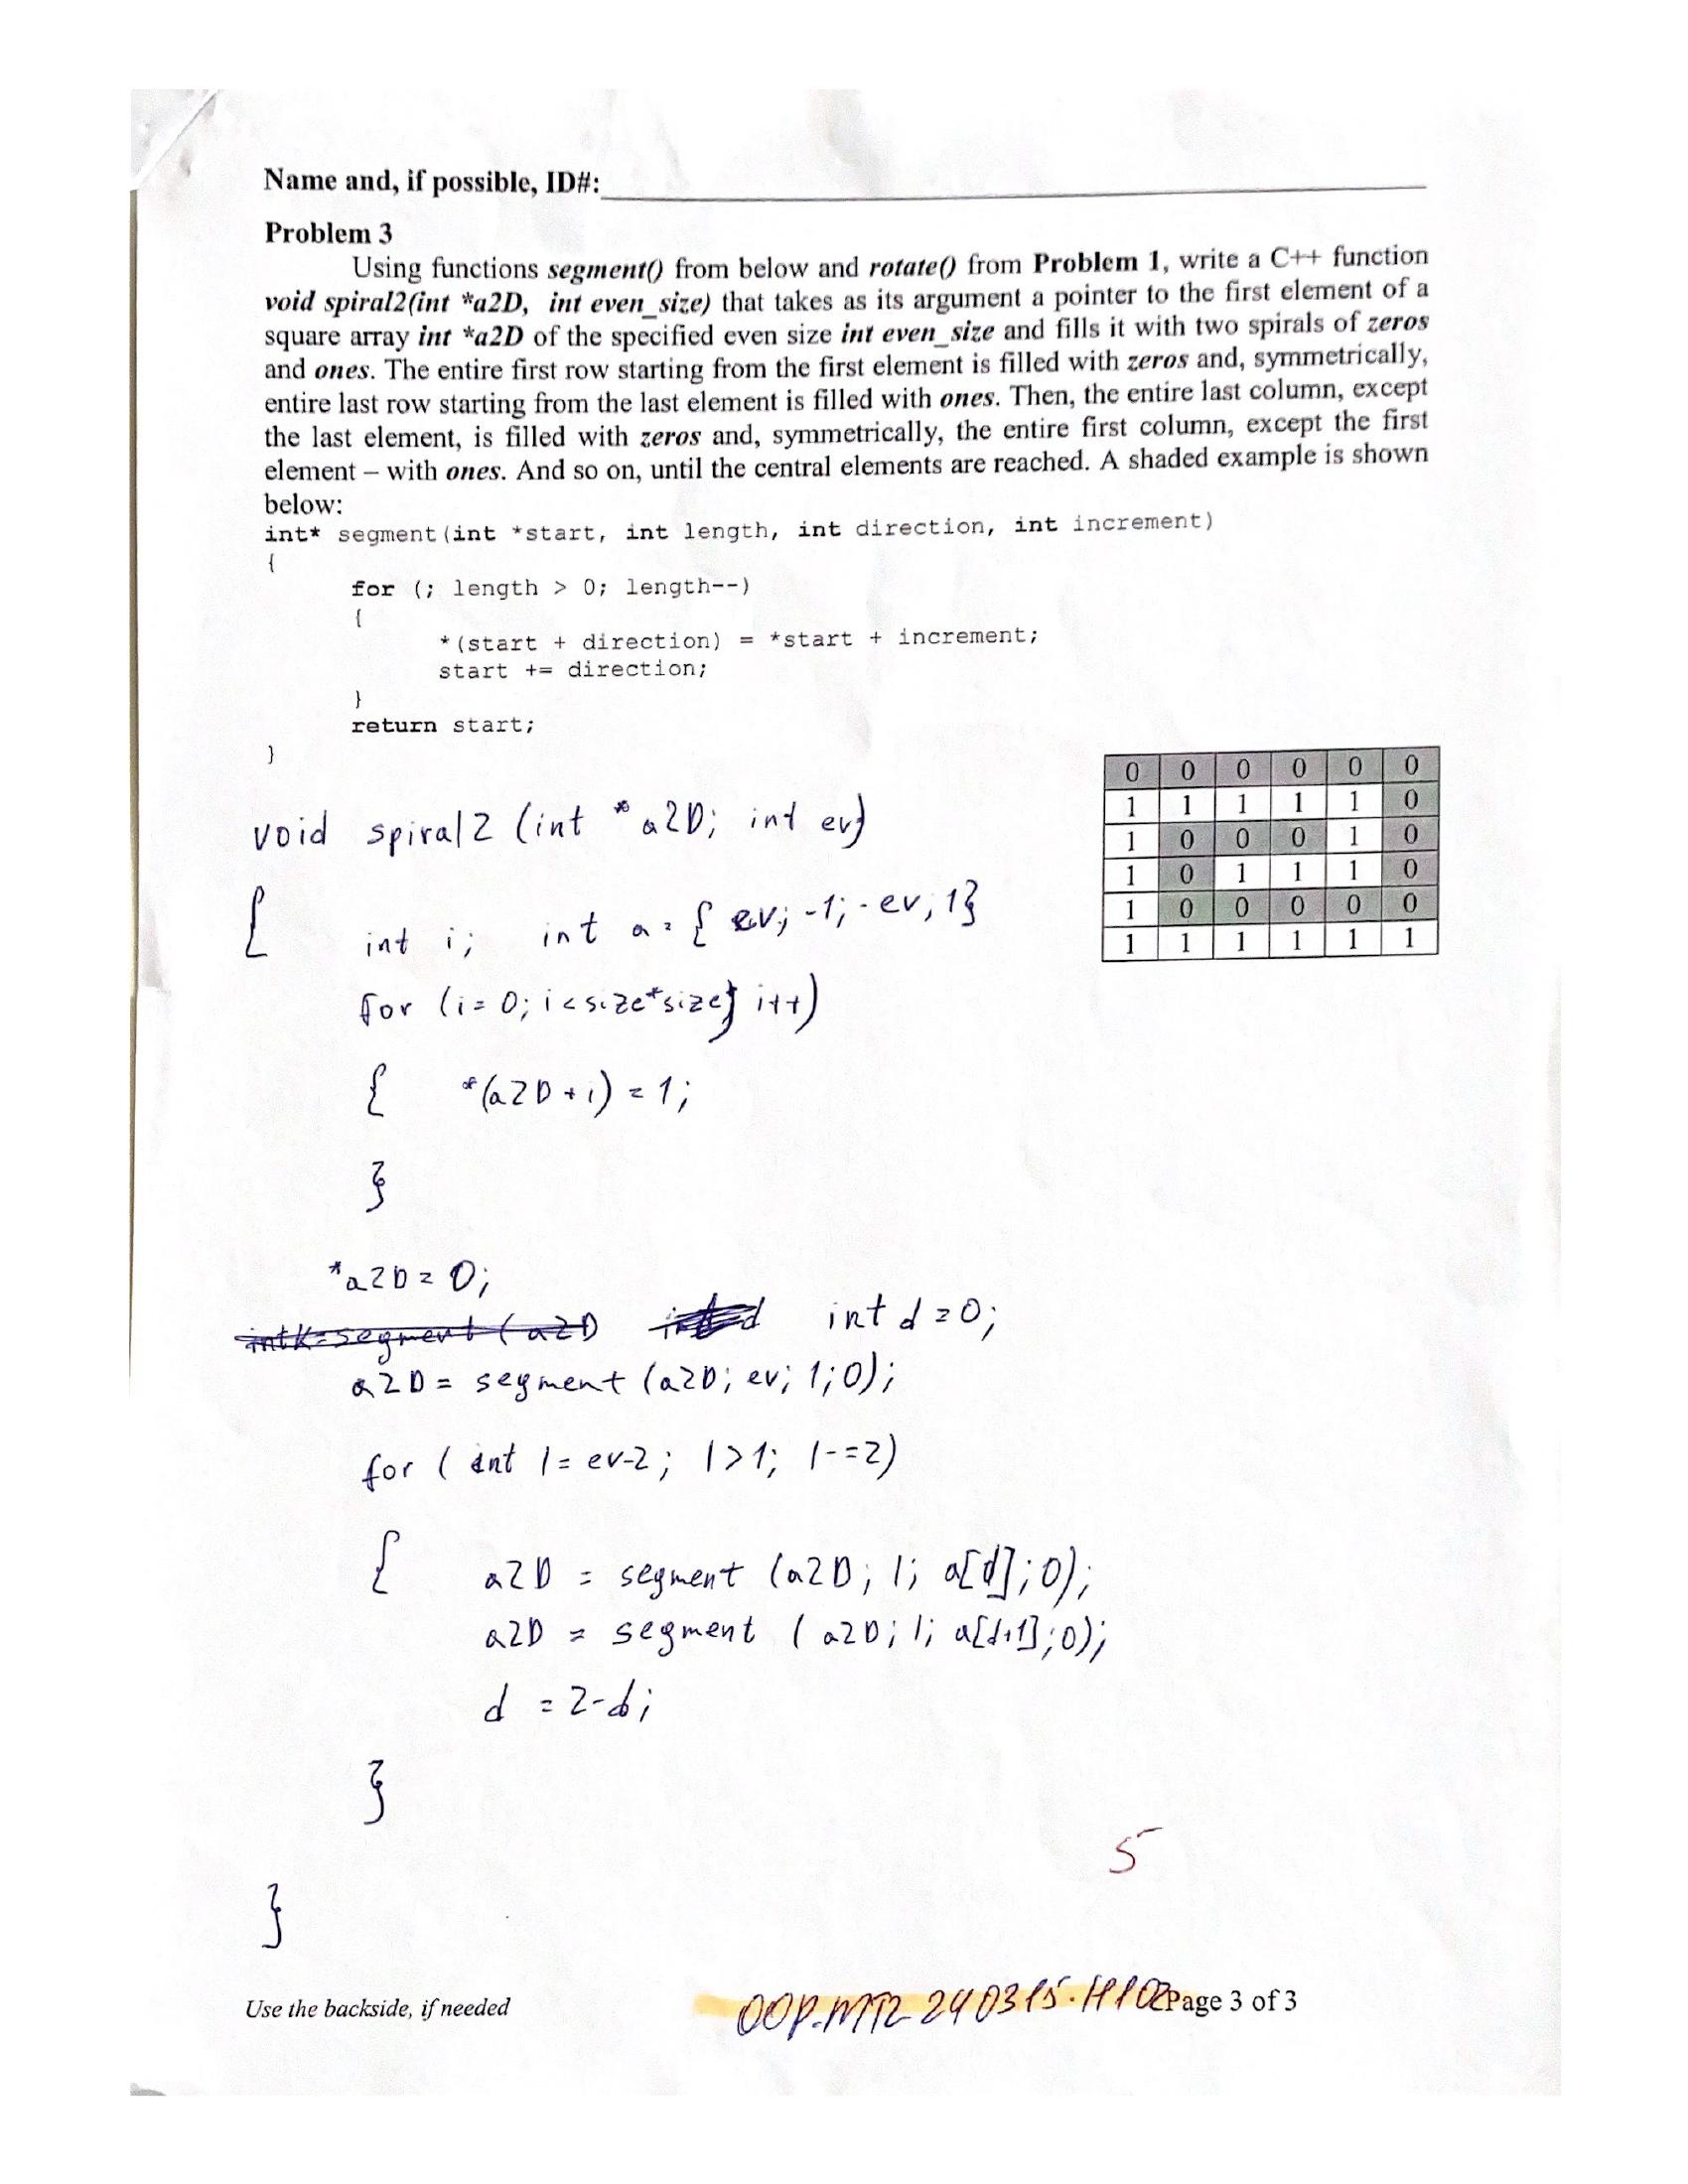 Name and, if possible, ID#:
Problem 3
Using functions segment() from below and rotate() from Problem 1, write a C++ function
void spiral2(int *a2D, int even_size) that takes as its argument a pointer to the first element of a
square array int *a2D of the specified even size int even_size and fills it with two spirals of zeros
and ones. The entire first row starting from the first element is filled with zeros and, symmetrically,
entire last row starting from the last element is filled with ones. Then, the entire last column, except
the last element, is filled with zeros and, symmetrically, the entire first column, except the first
element – with ones. And so on, until the central elements are reached. A shaded example is shown
below:
int* segment(int *start, int length, int direction, int increment)
{
for (; length > 0; length--)
{
*(start + direction) = *start + increment;
start += direction;
}
return start;
}
0 0 0 0 0 0
1 1 1 1 1 0
1 0 0 0 1 0
1 0 1 1 1 0
1 0 0 0 0 0
1 1 1 1 1 1
void spiral2 (int *a2D; int ev)
{
int i; int a = { ev; -1; -ev; 1}
for (i = 0; i < size*size; i++)
{ *(a2D + i) = 1;
}
*a2D = 0;
int k = segment (a2D int d = 0;
a2D = segment (a2D; ev; 1; 0);
for ( int l = ev-2; l > 1; l -= 2)
{ a2D = segment (a2D; l; a[d]; 0);
a2D = segment ( a2D; l; a[d+1]; 0);
d = 2-d;
}
5
}
Use the backside, if needed
OOP.MT2 240315.H102
Page 3 of 3